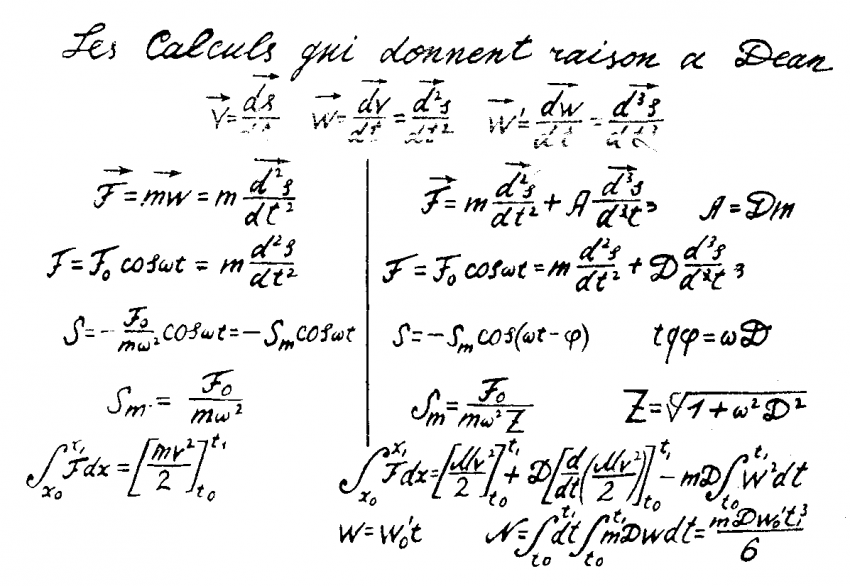 Les Calculs qui donnent raison a Dean
V⃗ = d⃗s/dt   W⃗ = d⃗v/dt = d⃗²s/dt²   W⃗' = d⃗w/dt = d⃗³s/dt³
F⃗ = mw⃗ = m d⃗²s/dt²
F = F₀ cosωt = m d²s/dt²
S = - F₀/mω² cosωt = - Sₘ cosωt
Sₘ = F₀/mω²
∫ₓ₀ˣ¹ F dx = [mv²/2]ₜ₀ᵗ¹
F⃗ = m d⃗²s/dt² + A d⃗³s/d³t³   A = Dm
F = F₀ cosωt = m d²s/dt² + D d³s/d³t³
S = - Sₘ cos(ωt - φ)   tgφ = ωD
Sₘ = F₀/mω²Z   Z = √1 + ω²D²
∫ₓ₀ˣ¹ F dx = [Mv²/2]ₜ₀ᵗ¹ + D[d/dt(Mv²/2)]ₜ₀ᵗ¹ - mD∫ₜ₀ᵗ¹ W²dt
W = W₀'t   N = ∫ₜ₀ᵗ¹ dt ∫ₜ₀ᵗ¹ mDwdt = mDw₀'t₁³/6